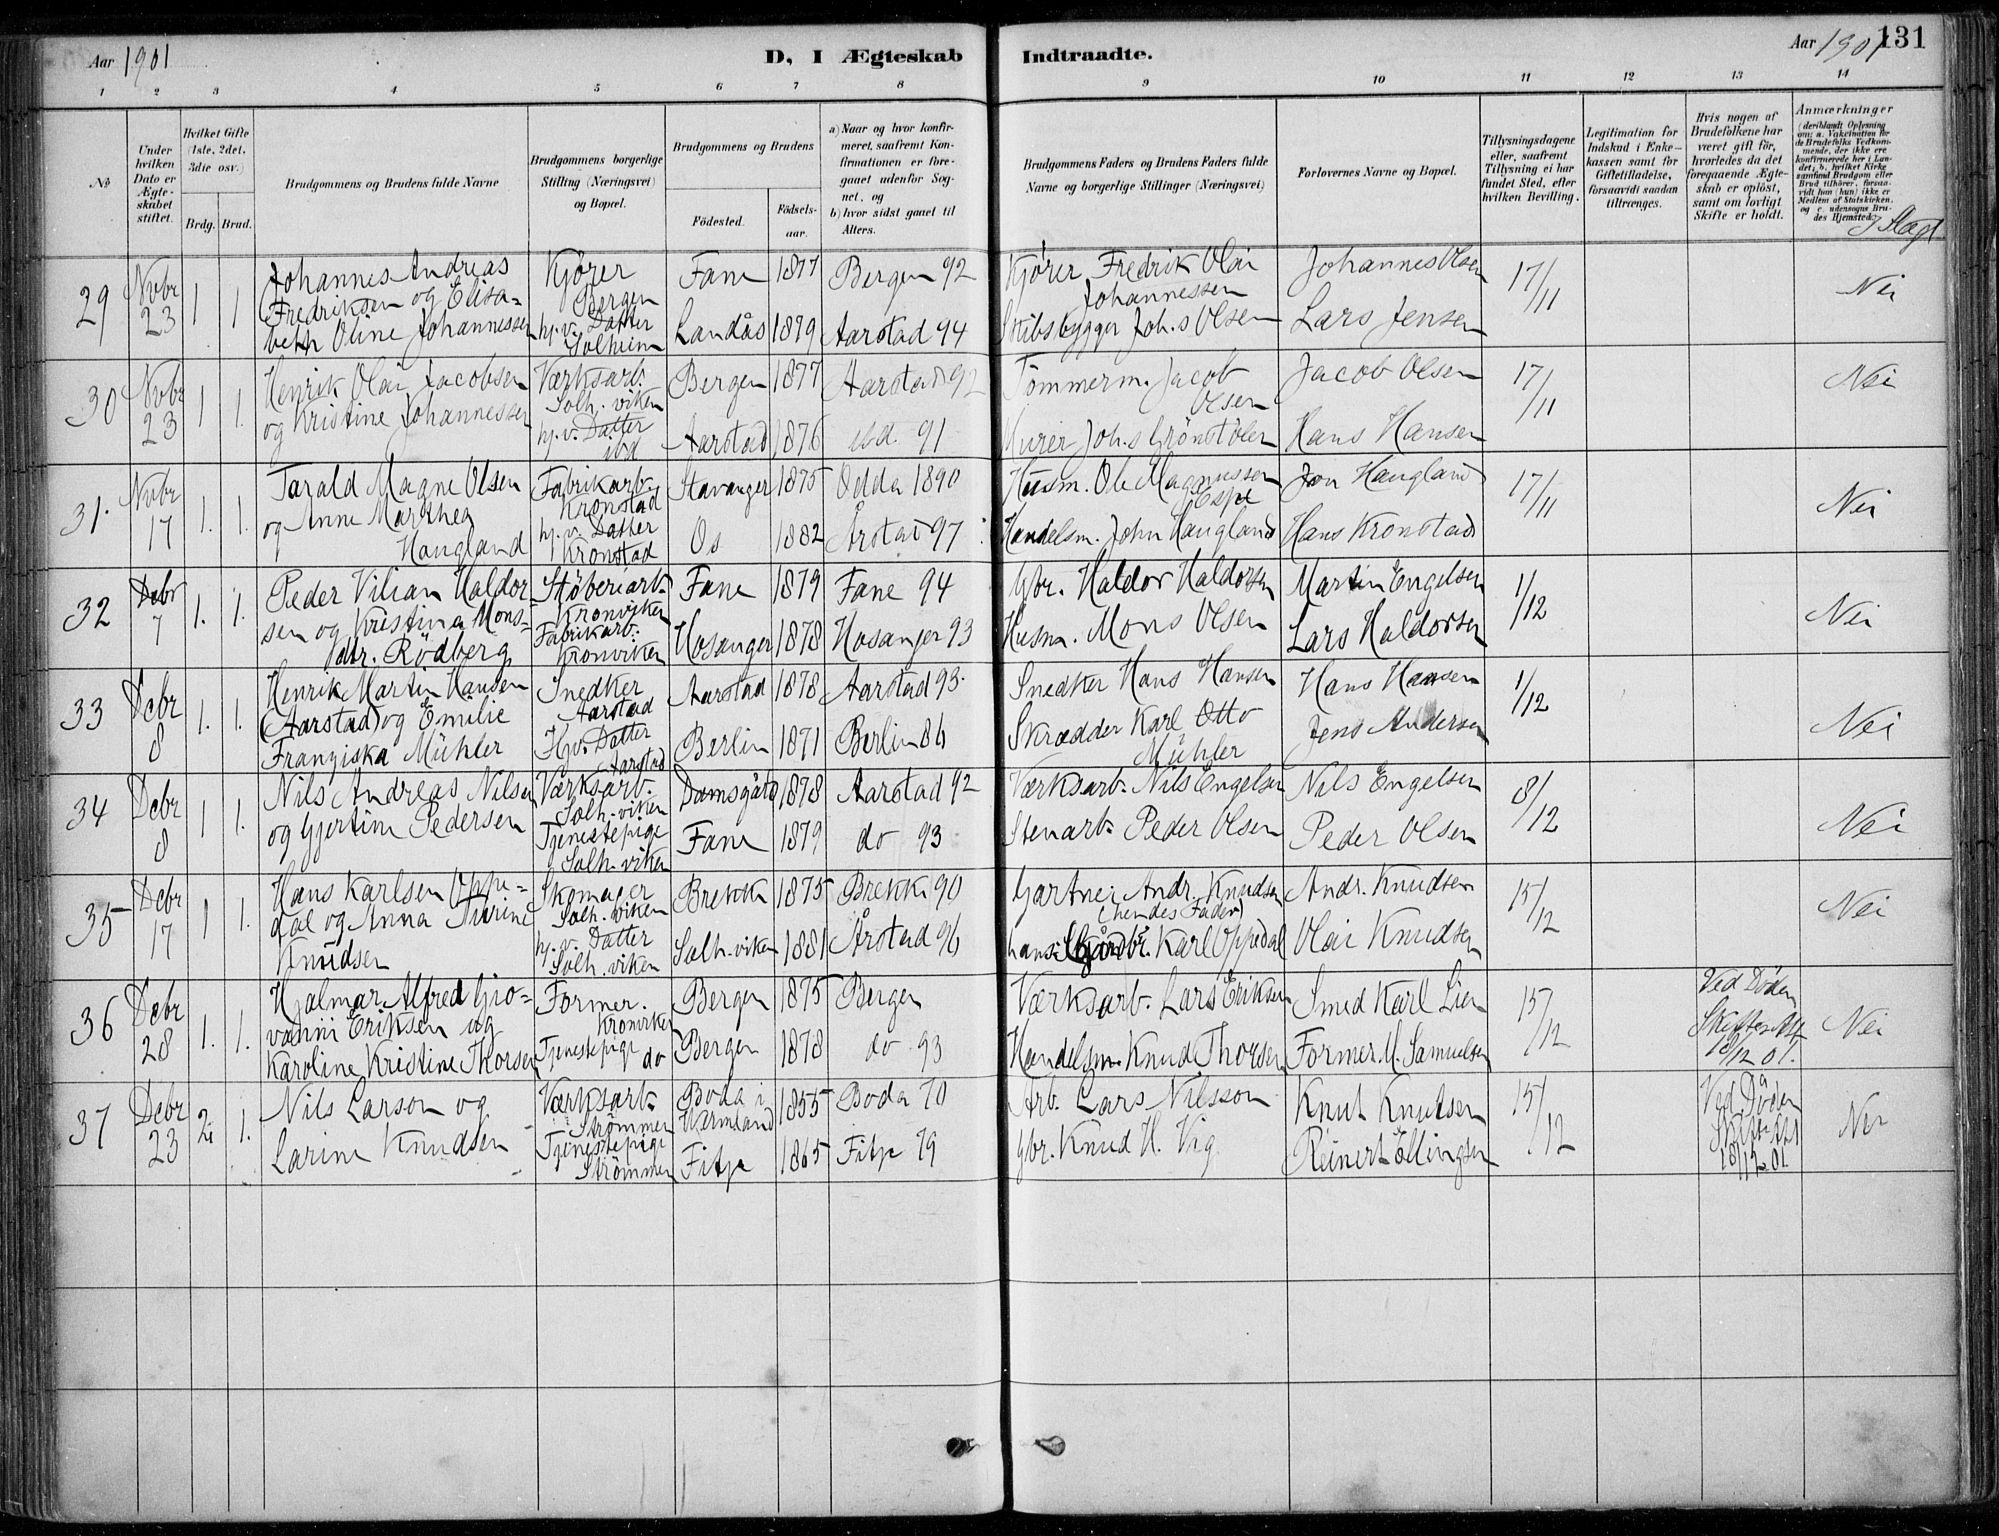 Aar 1901
D, I Ægteskab Indtraadte.
Aar 1901 131
1 2 3 4 5 6 7 8 9 10 11 12 13 14
№
Under hvilken Dato er Ægteskabet stiftet.
Hvilket Gifte (1ste, 2det, 3die osv.)
Brdg. Brud.
Brudgommens og Brudens fulde Navne
Brudgommens borgerlige Stilling (Næringsvei) og Bopæl.
Brudgommens og Brudens
Födested. Födsels-aar.
a) Naar og hvor konfirmeret, saafremt Konfirmationen er foregaaet udenfor Sognet, og
b) hvor sidst gaaet til Alters.
Brudgommens Faders og Brudens Faders fulde Navne og borgerlige Stillinger (Næringsvei)
Forlovernes Navne og Bopæl.
Tillysningsdagene eller, saafremt Tillysning ei har fundet Sted, efter hvilken Bevilling.
Legitimation for Indskud i Enkekassen samt for Giftetilladelse, forsaavidt saadan tiltrænges.
Hvis nogen af Brudefolkene har været gift før, hvorledes da det foregaaende Ægteskab er oplöst, samt om lovligt Skifte er holdt.
Anmærkninger (deriblandt Oplysning om: a. Vakcination for de Brudefolks Vedkommende, der ikke ere konfirmerede her i Landet; b. hvilket Kirkesamfund Brudgom eller Brud tilhörer, forsaavidt han (hun) ikke er Medlem af Statskirken, og c. udensogns Brudes Hjemsted.)
I Slægt
29 Nvbr 23 1 1
Johannes Andreas
Fredriksen og Elisa-
beth Oline Johannessen
Kjører
Bergen
hj.v. Datter
Solheim
Fane 1877 Bergen 92
Landås 1879 Aarstad 94
Kjører Fredrik Olai
Johannessen
Skibsbygger Joh.s Olsen
Johannes Olsen
Lars Jensen
17/11
Nei
30 Nvbr 23 1 1.
Henrik Olai Jacobsen
og Kristine Johannessen
Værksarb.
Solh.viken
hj.v. Datter
ibd
Bergen 1877 Aarstad 92
Aarstad 1876 ibd. 91
Tømmerm. Jacob
Olsen
Murer Joh.s Grönstölen
Jacob Olsen
Hans Hansen
17/11
Nei
31. Nvbr 17 1. 1.
Tarald Magne Olsen
og Anne Marthea
Haugland
Fabrikarb.
Kronstad
hj.v. Datter
Kronstad
Stavanger 1875 Odda 1890
Os 1882 Årstad 97
Husm. Ole Magnussen
Espe
Handelsm. John Haugland
Jon Haugland
Hans Kronstad
17/11
Nei
32 Debr 7 1. 1.
Peder Vilian Haldor-
sen og Kristina Mons-
dtr. Rödberg
Støberiarb.
Kronviken
Fabrikarb.
Kronviken
Fane 1879 Fane 94
Hosanger 1878 Hosanger 93
Gbr. Haldor Haldorsen
Husm. Mons Olsen
Martin Engelsen
Lars Haldorsen
1/12
Nei
33 Debr 8 1. 1.
Henrik Martin Hansen
(Aarstad) og Emilie
Franziska Mühler
Snedker
Aarstad
Hjv. Datter
Aarstad
Aarstad 1878 Aarstad 93.
Berlin 1871 Berlin 86
Snedker Hans Hansen
Skrædder Karl Otto
Mühler
Hans Hansen
Jens Andersen
1/12
Nei
34 Debr 8 1 1.
Nils Andreas Nilsen
og Gjertine Pedersen
Værksarb.
Solh.viken
Tjenestepige
Solh.viken
Damsgård 1878 Aarstad 92
Fane 1879 do 93
Værksarb. Nils Engelsen
Stenarb. Peder Olsen
Nils Engelsen
Peder Olsen
8/12
Nei
35 Debr 17 1 1.
Hans Karlsen Oppe-
dal og Anna Turine
Knudsen
Skomager
Solh.viken
hj.v. Datter
Solh.viken
Brekke 1875 Brekke 90
Solh.viken 1881 Årstad 96
Gartner Andr. Knudsen
(hendes Fader)
hans: Gårdbr. Karl Oppedal
Andr. Knudsen
Olai Knudsen
15/12
Nei
36 Debr 28 1. 1.
Hjalmar Alfred Gio-
vanni Eriksen og
Karoline Kristine Thorsen
Former.
Kronviken
Tjenestepige
do
Bergen 1875 Bergen
Bergen 1878 do 93
Værksarb. Lars Eriksen
Handelsm. Knud Thorsen
Smed Karl Lien
Former M. Samuelsen
15/12
Ved Døden
Skifteatt.
18/12 01.
Nei
37 Debr 23 2 1.
Nils Larson og
Larine Knudsen
Værksarb.
Strømmen
Tjenestepige
Strømmen
Boda i
Wermland 1855 Boda 70
Fitje 1865 Fitje 79
Arb. Lars Nilsson
Gbr. Knud H. Vig
Knut Knutsen
Reinert Ellingsen
15/12
Ved Døden
Skifteatt
18/12 01
Nei